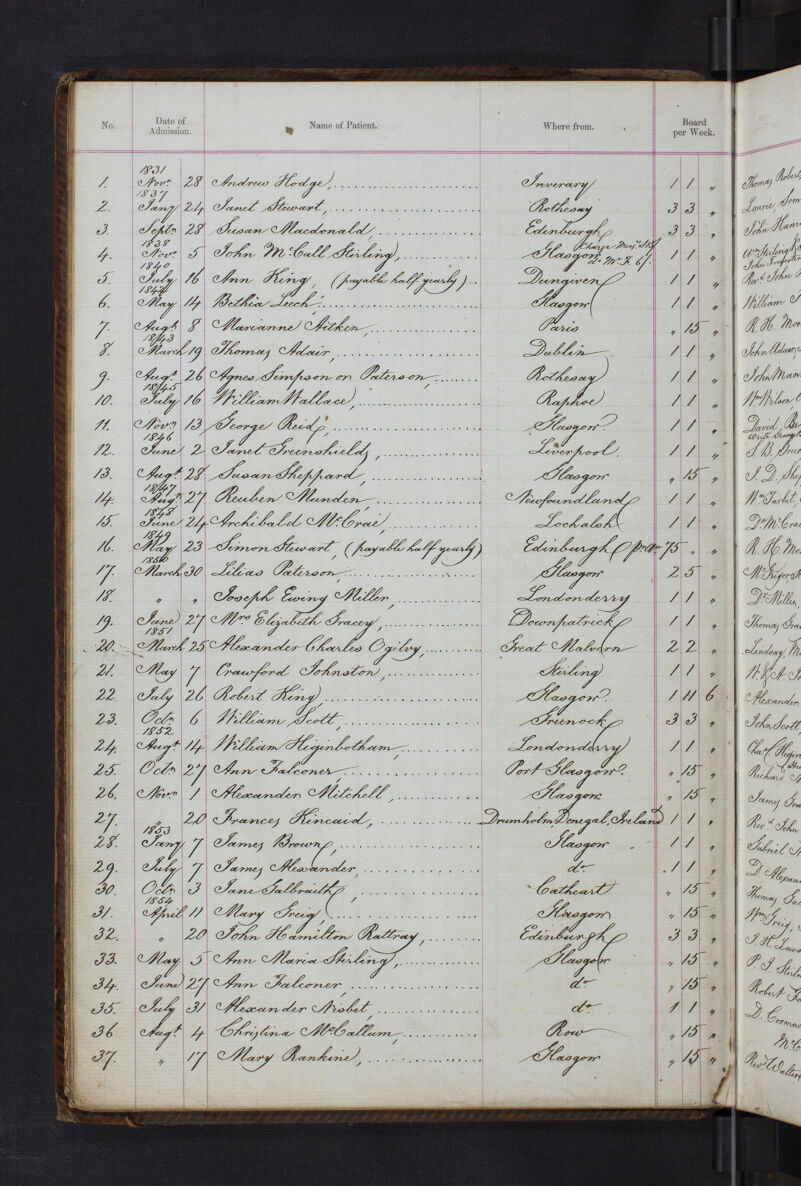 No. Date of Admission. Name of Patient. Where from. Board per Week.
1831
1. Novr. 28 Andrew Hodge, Inverary 1 1 „
1837
2. Jany 24 Janet Stewart, Rothesay 3 3 „
3. Septr. 28 Susan Macdonald, Edinburgh 3 3 „
1838
4. Novr. 5 John McCall Stirling, Glasgow 1 1 „
1840
5. July 16 Ann King, (payable half yearly) Dungiven 1 1 „
6. May 14 Bethia Leech, Glasgow 1 1 „
7. Augt. 8 Marianne Aitken, Paris „ 15 „
1843
8. March 19 Thomas Adair, Dublin 1 1 „
9. Augt. 26 Agnes Simpson or Paterson, Rothesay 1 1 „
1845
10. July 16 William Wallace, Raphoe 1 1 „
11. Novr. 13 George Reid, Glasgow 1 1 „
1846
12. June 2 Janet Greenshields, Liverpool. 1 1 „
13. Augt. 28 Susan Sheppard, Glasgow „ 15 „
1847
14. Augt. 27 Reuben Munden, Newfoundland 1 1 „
1848
15. June 24 Archibald McCrae, Lochalsh 1 1 „
1849
16. May 23 Simon Stewart, (payable half yearly) Edinburgh pr. a. 75 „ „
1850
17. March 30 Lilias Paterson, Glasgow 2 5 „
18. „ „ Joseph Ewing Miller, Londonderry 1 1 „
19. June 27 Mrs Elizabeth Gracey, Downpatrick 1 1 „
1851
20. March 25 Alexander Charles Ogilvy, Great Malvern 2 2 „
21. May 7 Crawford Johnston, Stirling 1 1 „
22 July 26 Robert King, Glasgow. 1 11 6
23. Octr. 6 William Scott, Greenock 3 3 „
1852
24. Augt. 14 William Higinbotham, Londonderry 1 1 „
25. Octr. 27 Ann Falconer, Port Glasgow. „ 15 „
26. Novr. 1 Alexander Mitchell, Glasgow „ 15 „
27. 20 Frances Kincaid, Drumholm, Donegal, Ireland 1 1 „
1853
28. Jany 7 James Brown, Glasgow 1 1 „
29. July 7 James Alexander, do. 1 1 „
30. Octr. 3 Jane Galbraith, Cathcart „ 15 „
1854
31. April 11 Mary Greig Glasgow „ 15 „
32. „ 20 John Hamilton Rattray, Edinburgh 3 3 „
33. May 5 Ann Maria Stirling, Glasgow „ 15 „
34. June 27 Ann Falconer, do. „ 15 „
35. July 31 Alexander Nisbet, do. 1 1 „
36 Augt. 4 Christina McCallum, Row „ 15 „
37. „ 17 Mary Rankine, Glasgow „ 15 „